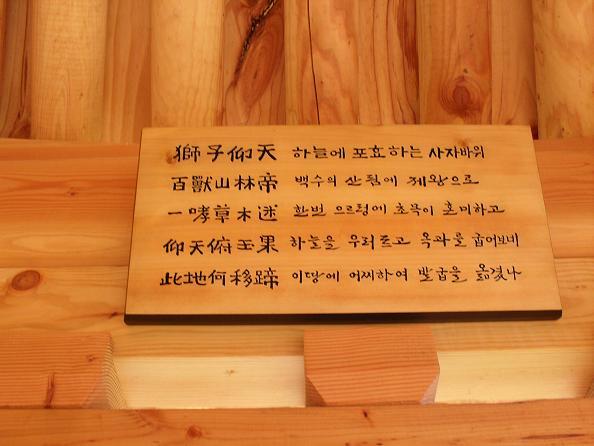 獅子仰天 하늘에 포효하는 사자바위
百獸山林帝 백수의 산림에 제왕으로
一哮草木迷 한번 으르렁에 초목이 혼미하고
仰天俯玉果 하늘을 우러르고 옥과를 굽어보네
此地何移蹄 이땅에 어찌하여 발굽을 옮겼나